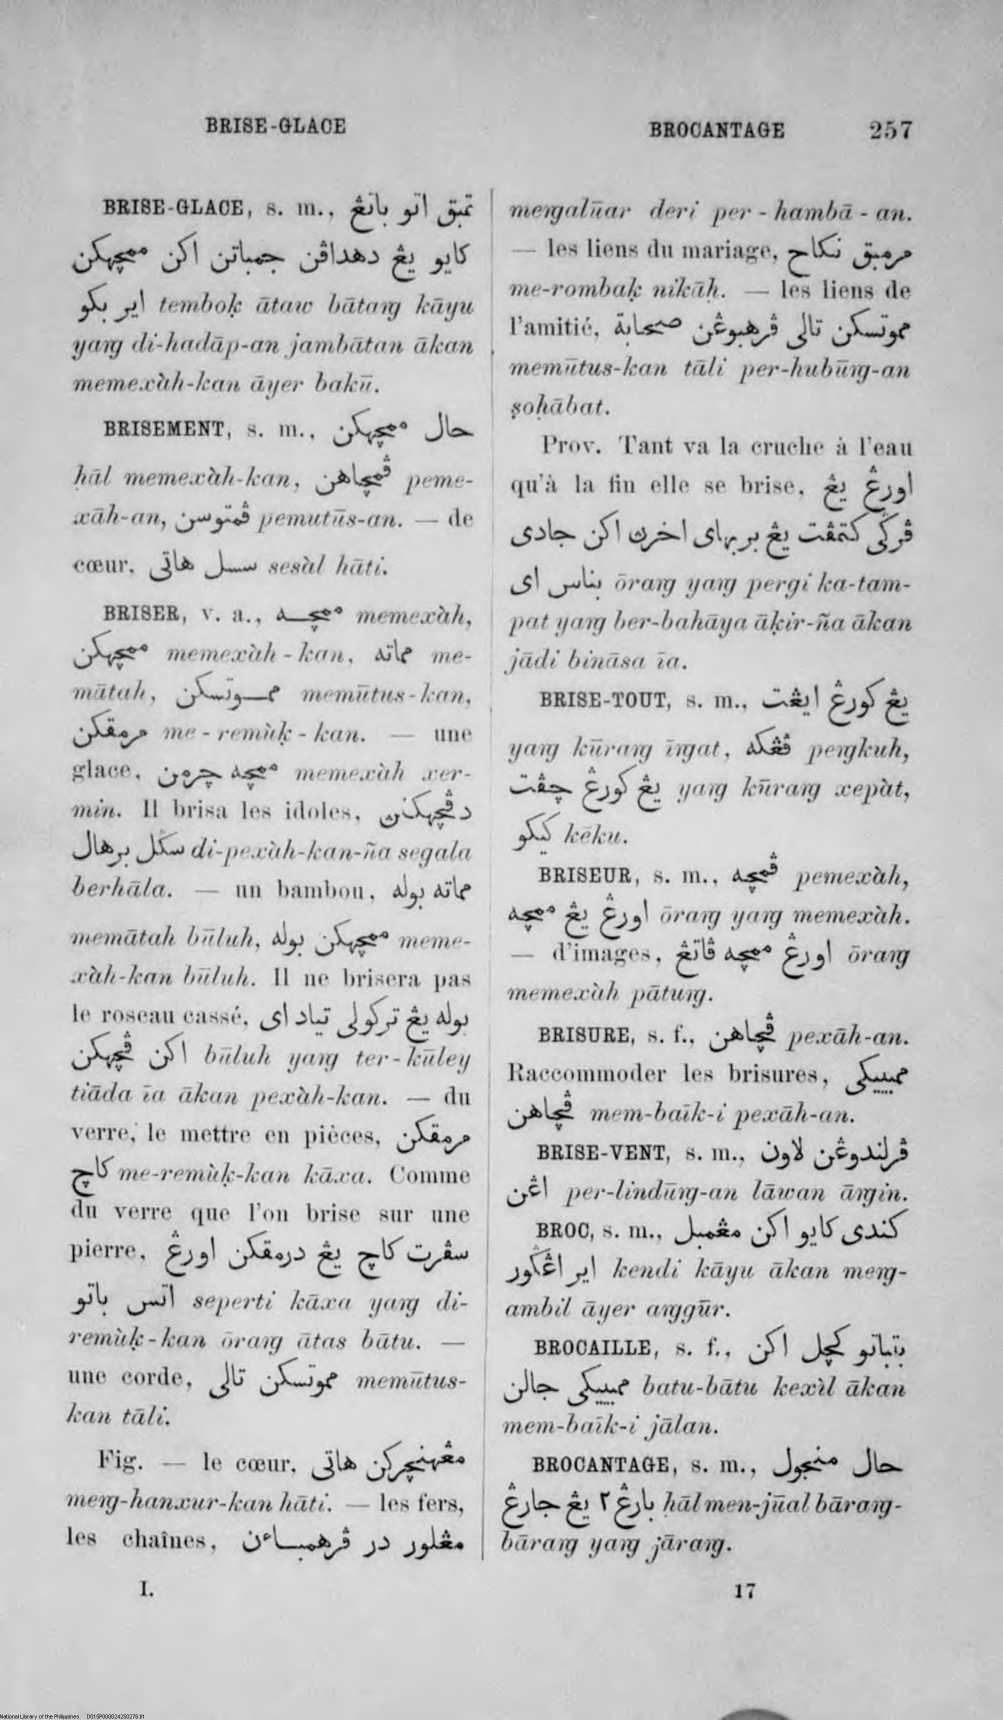 BRISE-GLACE
BROCANTAGE 257
BRISE-GLACE, s. m., تمبق اتو باتڠ
كايو يڠ دهداڤن جمباتن اكن ممچهكن
اير بكو temboḳ ātaw bātaŋ kāyu
yaŋ di-hadāp-an jambātan ākan
memexàh-kan āyer bakū.
BRISEMENT, s. m., حال ممچهكن
ḥāl memexàh-kan, ڤمچاهن peme-
xāh-an, ڤمتوسن pemutūs-an. — de
cœur, سسل هاتى sesàl hāti.
BRISER, v. a., ممچه memexàh,
ممچهكن memexàh-kan, مماته me-
mātah, مموتسكن memūtus-kan,
مرمقكن me-remùḳ-kan. — une
glace, ممچه چرمن memexàh xer-
min. Il brisa les idoles, دڤچهكنڽ
سݢل برهال di-pexàh-kan-ña segala
berhāla. — un bambou, مماته بوله
memātah būluh, ممچهكن بوله meme-
xàh-kan būluh. Il ne brisera pas
le roseau cassé, بوله يڠ تركولى تياد اى
اكن ڤچهكن būluh yaŋ ter-kūley
tiāda īa ākan pexàh-kan. — du
verre, le mettre en pièces, مرمقكن
كاچ me-remùḳ-kan kāxa. Comme
du verre que l'on brise sur une
pierre, سڤرت كاچ يڠ درمقكن اورڠ
اتس باتو seperti kāxa yaŋ di-
remùḳ-kan ōraŋ ātas bātu. —
une corde, مموتسكن تالى memūtus-
kan tāli.
Fig. — le cœur, مڠهنچركن هاتى
meŋ-hanxur-kan hāti. — les fers,
les chaînes, مڠلور در ڤرهمباءن
I.
meŋgalūar deri per-hambā-an.
— les liens du mariage, مرمبق نكاح
me-rombaḳ nikāḥ. — les liens de
l'amitié, مموتسكن تالى ڤرهبوڠن صحابة
memūtus-kan tāli per-hubūŋ-an
ṣoḥābat.
Prov. Tant va la cruche à l'eau
qu'à la fin elle se brise, اورڠ يڠ
ڤرݢى كتمڤت يڠ بربهاى اخرڽ اكن جادى
بناس اى ōraŋ yaŋ pergi ka-tam-
pat yaŋ ber-bahāya āḳir-ña ākan
jādi bināsa īa.
BRISE-TOUT, s. m., يڠ كورڠ ايڠت
yaŋ kūraŋ īŋgat, ڤڠكه peŋkuh,
يڠ كورڠ چڤت yaŋ kūraŋ xepàt,
كيكو kēku.
BRISEUR, s. m., ڤمچه pemexàh,
اورڠ يڠ ممچه ōraŋ yaŋ memexàh.
— d'images, اورڠ ممچه ڤاتڠ ōraŋ
memexàh pātuŋ.
BRISURE, s. f., ڤچاهن pexāh-an.
Raccommoder les brisures, ممبيكى
ڤچاهن mem-baīk-i pexāh-an.
BRISE-VENT, s. m., ڤرلندوڠن لاون
اڠن per-lindūŋ-an lāwan āŋin.
BROC, s. m., كندى كايو اكن مڠمبل
اير اڠݢور kendi kāyu ākan meŋ-
ambil āyer aŋgūr.
BROCAILLE, s. f., بتباتو كچل اكن
ممبيكى جالن batu-bātu kexìl ākan
mem-baīk-i jālan.
BROCANTAGE, s. m., حال منجول
بارڠ ٢ يڠ جارڠ ḥāl men-jūal bāraŋ-
bāraŋ yaŋ jāraŋ.
17
National Library of the Philippines